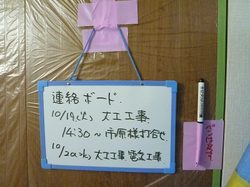 連絡ボード.
10/19(火) 大工工事
14:30〜市原様打合せ
10/20(水) 大工工事 電気工事